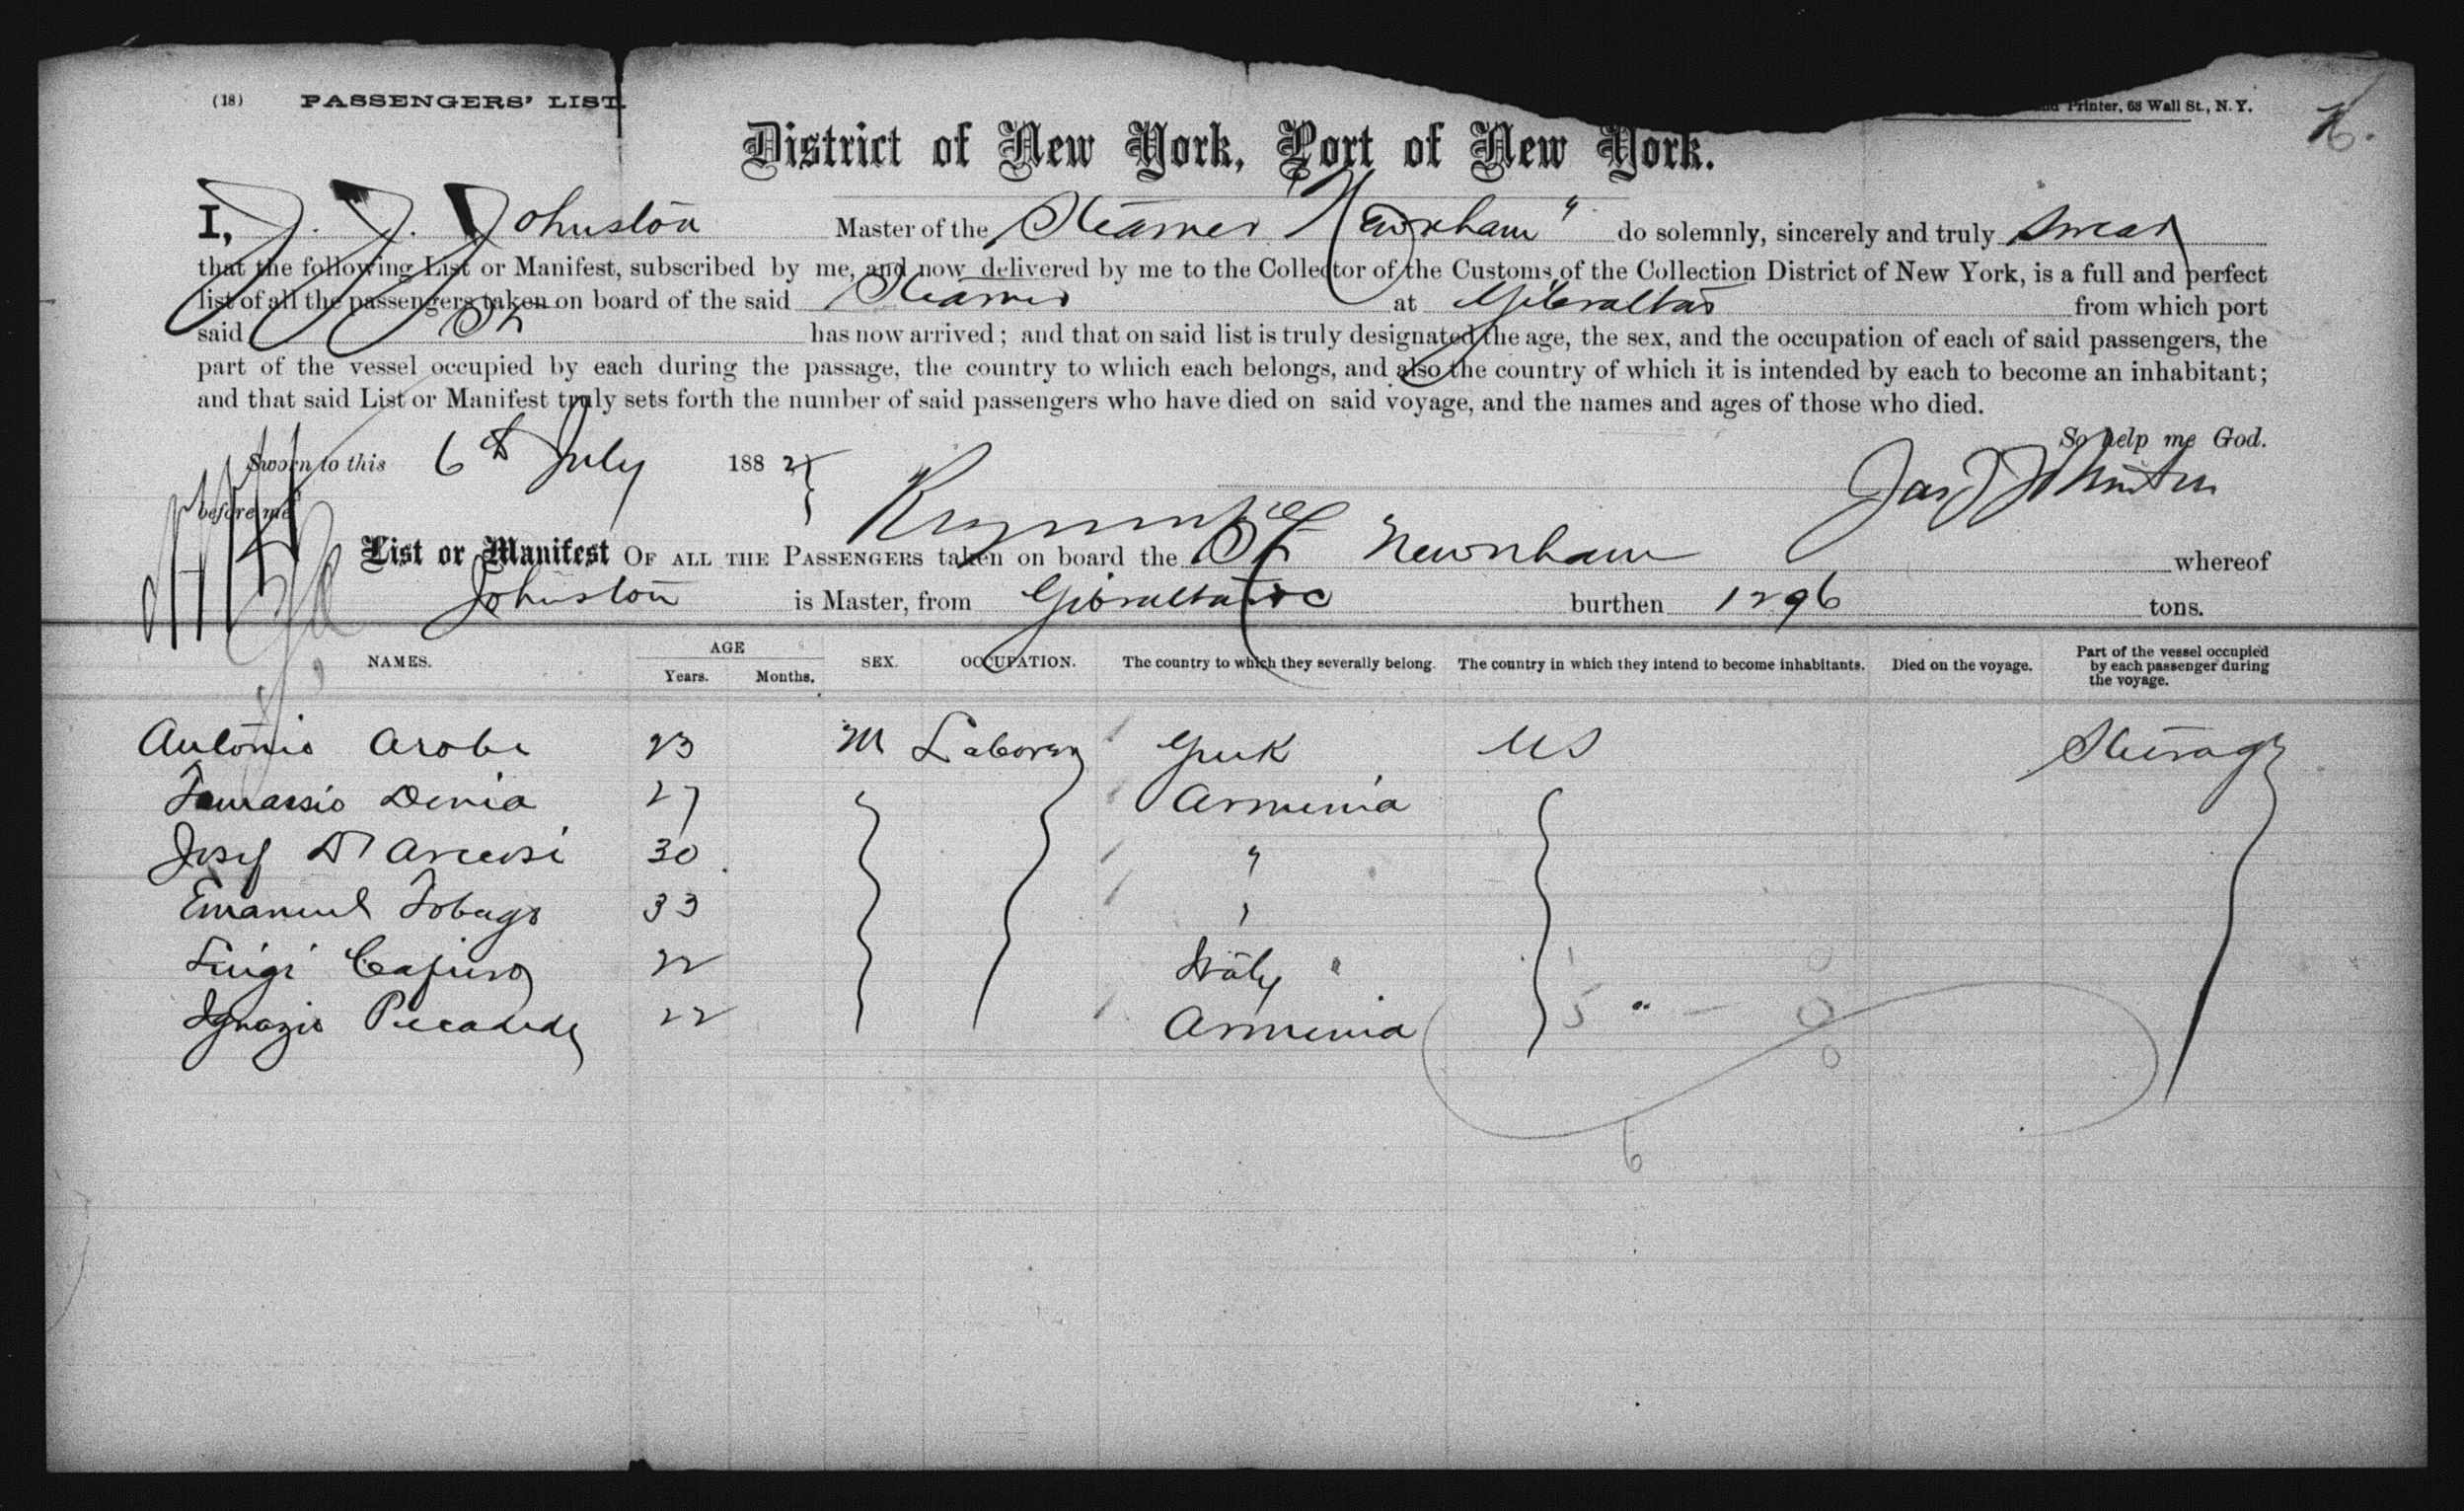 (18) PASSENGERS' LIST.
Printer, 68 Wall St., N.Y.
District of New York, Port of New York.
I, J. J. Johnston Master of the Steamer "Newnham" do solemnly, sincerely and truly swear
that the following List or Manifest, subscribed by me, and now delivered by me to the Collector of the Customs of the Collection District of New York, is a full and perfect
list of all the passengers taken on board of the said Steamer at Gibraltar from which port
said Str has now arrived; and that on said list is truly designated the age, the sex, and the occupation of each of said passengers, the
part of the vessel occupied by each during the passage, the country to which each belongs, and also the country of which it is intended by each to become an inhabitant;
and that said List or Manifest truly sets forth the number of said passengers who have died on said voyage, and the names and ages of those who died.
So help me God.
Sworn to this 6th July 1882
Jas J Johnston
before me
List or Manifest OF ALL THE PASSENGERS taken on board the Str Newnham whereof
Johnston is Master, from Gibraltar &c burthen 1296 tons.
NAMES. AGE Years. Months. SEX. OCCUPATION. The country to which they severally belong. The country in which they intend to become inhabitants. Died on the voyage. Part of the vessel occupied by each passenger during the voyage.
Antonio Arobe 23 M Laborer Greek US Steerage
Denia 27 Armenia
Josef 30 "
Emanuel Tobago 33 "
Luigi 22 Italy "
Ignazio 22 Armenia
5 " - 0
0
6